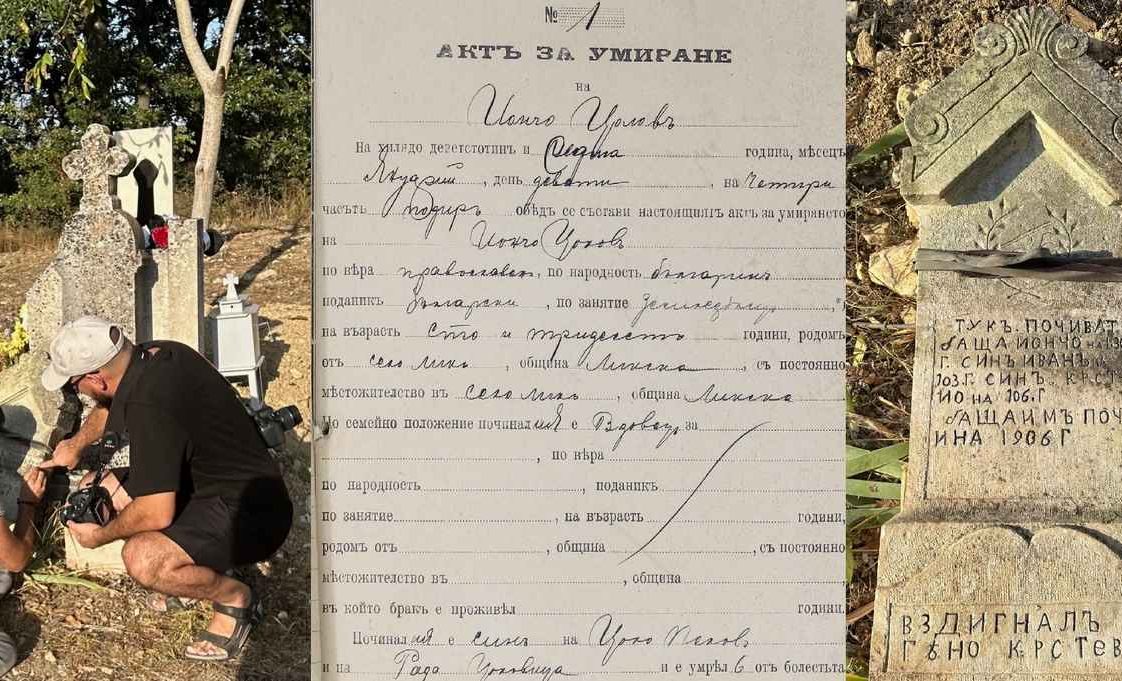 № 1
АКТЪ ЗА УМИРАНЕ
на
Йончо Цоловъ
На хилядо деветстотинъ и седма година, мѣсецъ
Януарий, день девети, на четири
часътъ подиръ обѣдъ се състави настоящиятъ актъ за умирането
на Йончо Цоловъ
по вѣра православенъ, по народность българинъ
поданикъ български, по занятие
на възрасть сто и тридесеть години, родомъ
отъ село Ликъ, община Ликска, съ постоянно
мѣстожителство въ село Ликъ, община Ликска
По семейно положение починалия е вдовецъ за
, по вѣра
по народность , поданикъ
по занятие , на възрасть години,
родомъ отъ , община , съ постоянно
мѣстожителство въ , община
въ който бракъ е проживѣлъ години.
Починалия е синъ на Цоло
и на Рада и е умрѣлъ 6 отъ болестьта
ТУКЪ. ПОЧИВАТ
БАЩА ЙОНЧО НА
Г. СИНЪ ИВАНЪ
103. Г. СИНЪ. КРСТ
ЙО НА 106. Г
БАЩА ИМЪ ПОЧ
ИНА 1906 Г
ВЗДИГНАЛЪ
ГѢНО КРСТЕВ